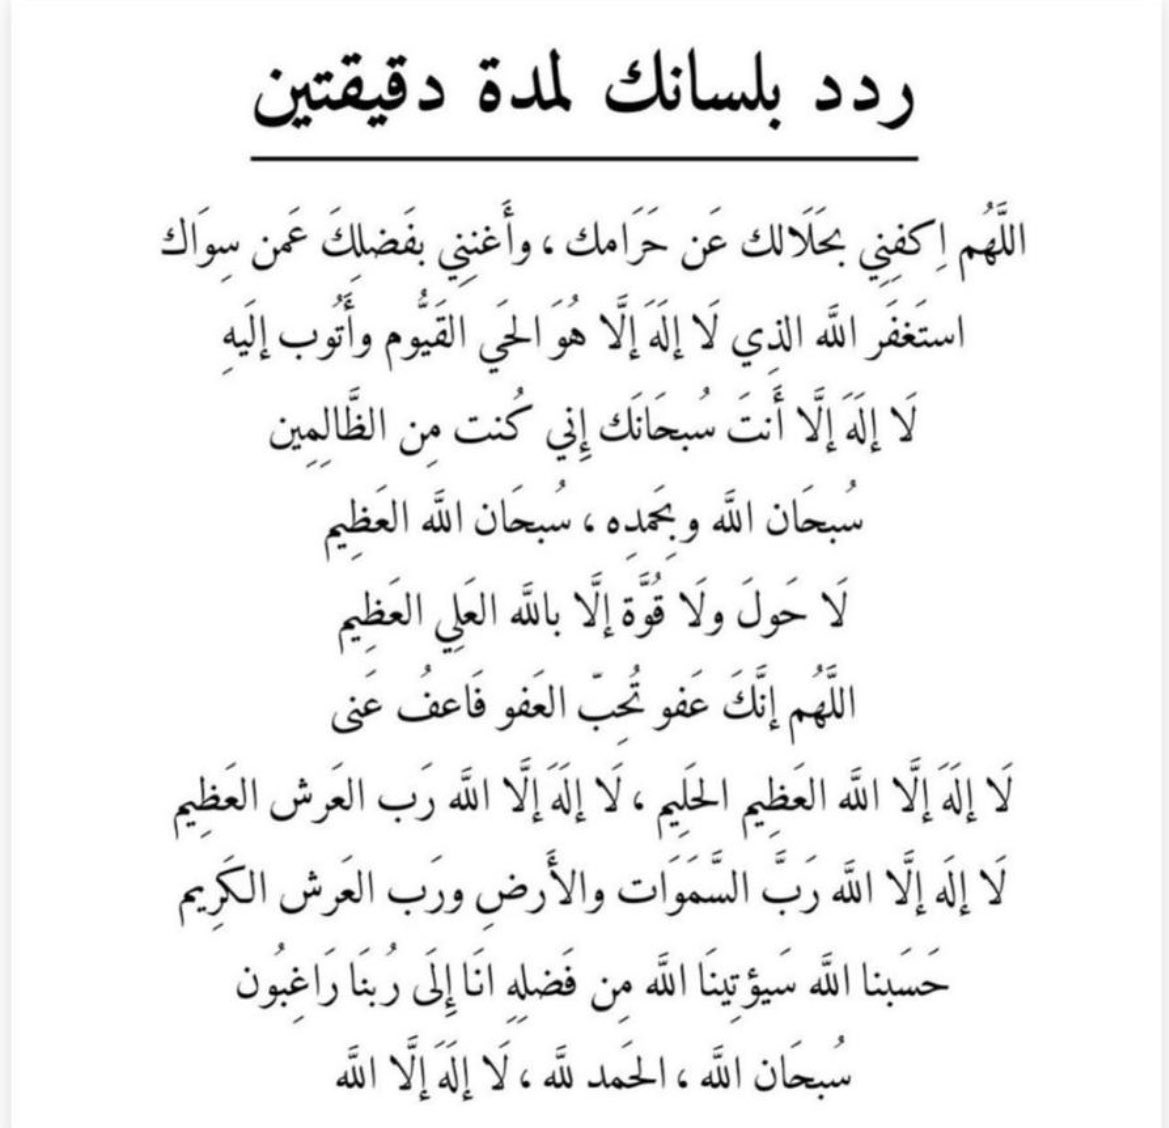 ردد بلسانك لمدة دقيقتين
اللَّهُم اِكفِنِي بحَلَالك عَن حَرَامك ، وأَغنِنِي بفَضلِكَ عَمن سِوَاك
استَغفَر اللَّه الذِي لَا إلَهَ إلَّا هُوَ الحَي القَيُّوم وأَتُوب إلَيهِ
لَا إلَهَ إلَّا أَنتَ سُبحَانَك إِني كُنت مِن الظَّالِمِين
سُبحَان اللَّه وبِحَمدِه ، سُبحَان اللَّه العَظِيم
لَا حَولَ ولَا قُوَّة إلَّا باللَّه العَلِي العَظِيم
اللَّهُم إنَّكَ عَفو تُحِبّ العَفو فَاعفُ عَنى
لَا إلَهَ إلَّا اللَّه العَظِيم الحَلِيم ، لَا إلَهَ إلَّا اللَّه رَب العَرش العَظِيم
لَا إلَه إلَّا اللَّه رَبَّ السَّمَوَات والأَرضِ ورَب العَرش الكَرِيم
حَسَبنا اللَّه سَيؤتِينَا اللَّه مِن فَضلِهِ انَا إِلَى رُبنَا رَاغِبُون
سُبحَان اللَّه ، الحَمد للَّه ، لَا إلَهَ إلَّا اللَّه